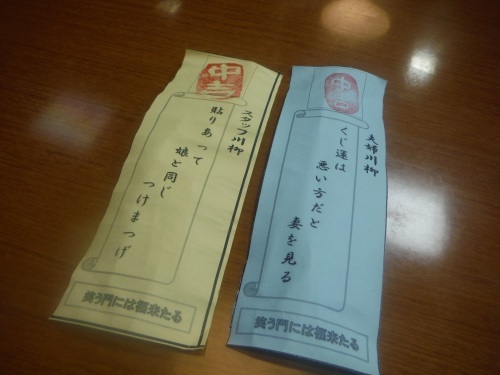 中吉
スタッフ川柳
貼りあって
娘と同じ
つけまつげ
笑う門には福来たる
中吉
夫婦川柳
くじ運は
悪い方だと
妻を見る
笑う門には福来たる